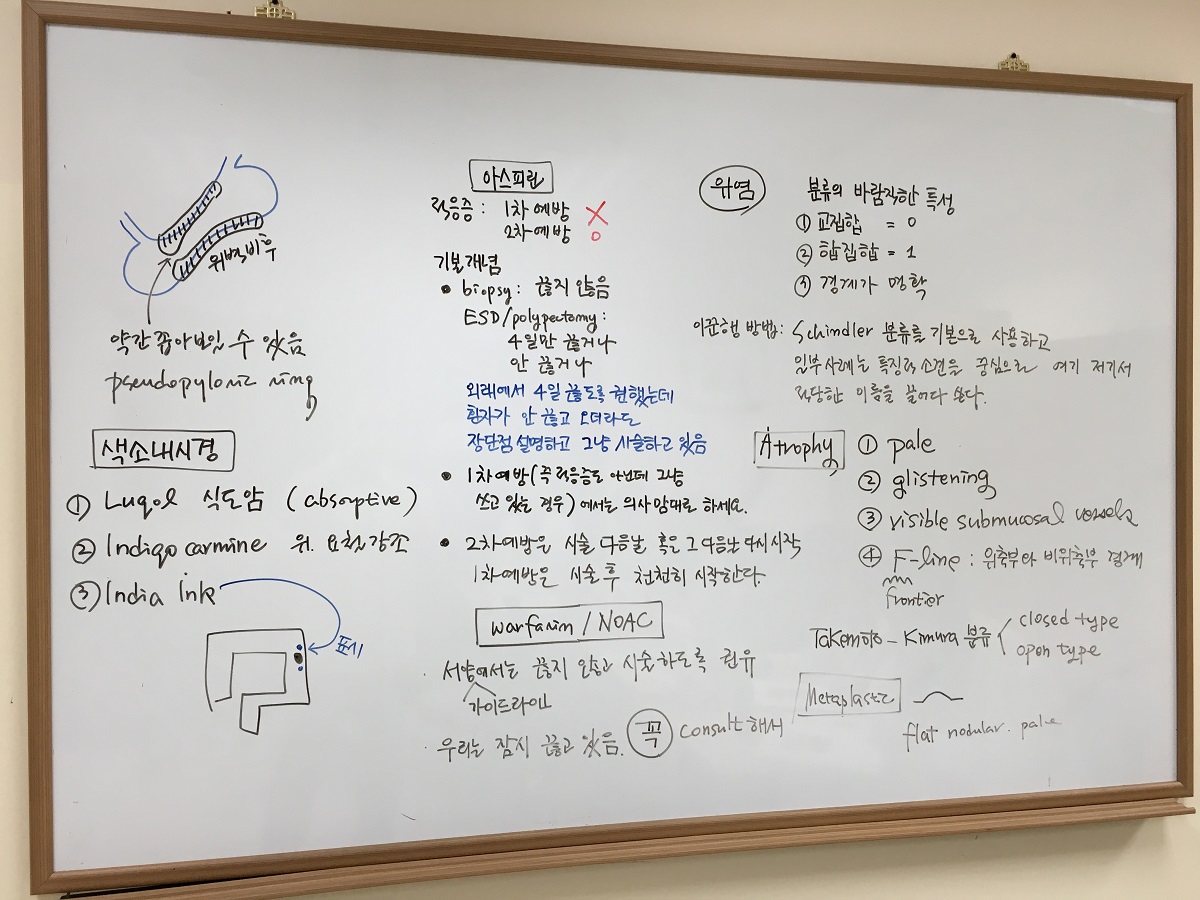 위벽비후
약간 좁아보일 수 있음
pseudopyloric ring
색소내시경
① Lugol 식도암 (absorptive)
② Indigo carmine 위. 요철강조
③ India Ink
표시
아스피린
적응증 : 1차 예방 X
2차 예방 O
기본개념
• biopsy : 끊지 않음
ESD/polypectomy :
4일만 끊거나
안 끊거나
외래에서 4일 끊도록 권했는데
환자가 안 끊고 오더라도
장단점 설명하고 그냥 시술하고 있음
• 1차예방(즉 적응증도 아닌데 그냥
쓰고 있는 경우)에서는 의사 맘대로 하세요.
• 2차예방은 시술 다음날 혹은 그 다음날 다시 시작
1차예방은 시술 후 천천히 시작한다.
warfarin / NOAC
· 서양에서는 끊지 않고 시술하도록 권유
가이드라인
· 우리는 잠시 끊고 있음. 꼭 consult 해서
위염
분류의 바람직한 특성
① 교집합 = 0
② 합집합 = 1
③ 경계가 명확
이준행 방법: Schindler 분류를 기본으로 사용하고
일부 사례는 특징적 소견을 중심으로 여기 저기서
적당한 이름을 끌어다 쓴다.
Atrophy
① pale
② glistening
③ visible submucosal vessels
④ F-line : 위축부와 비위축부 경계
frontier
Takemoto - Kimura 분류
closed type
open type
Metaplastic
flat nodular. pale